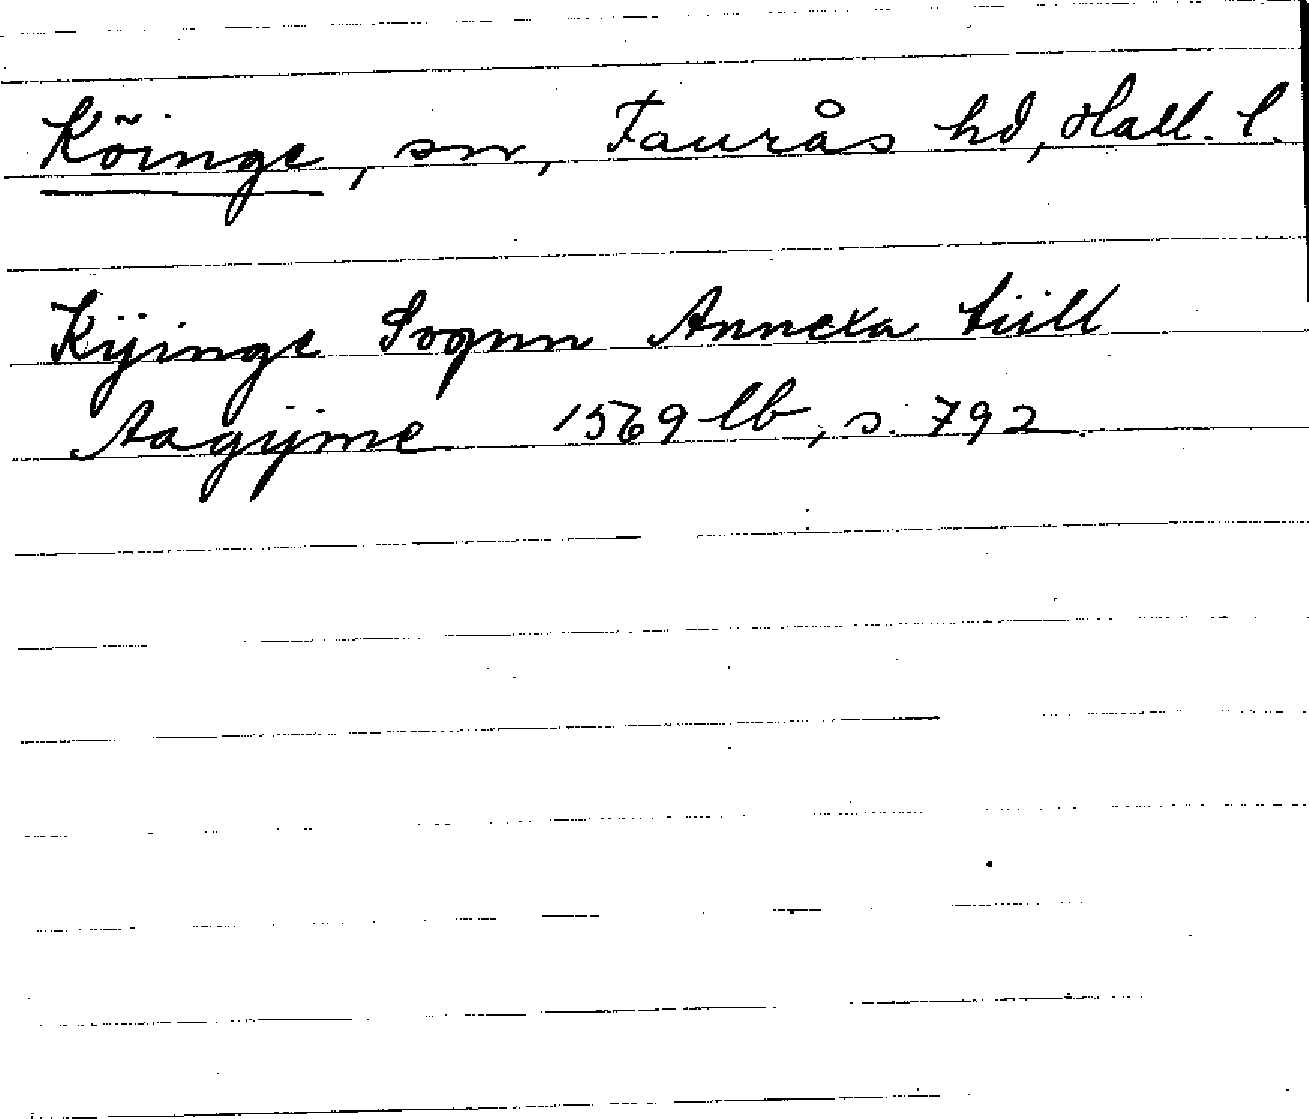 Köinge, sn, Faurås hd, Hall. l.
Kÿinge Sognn Annexa tiill
Aagÿme 1569 lb, s. 792